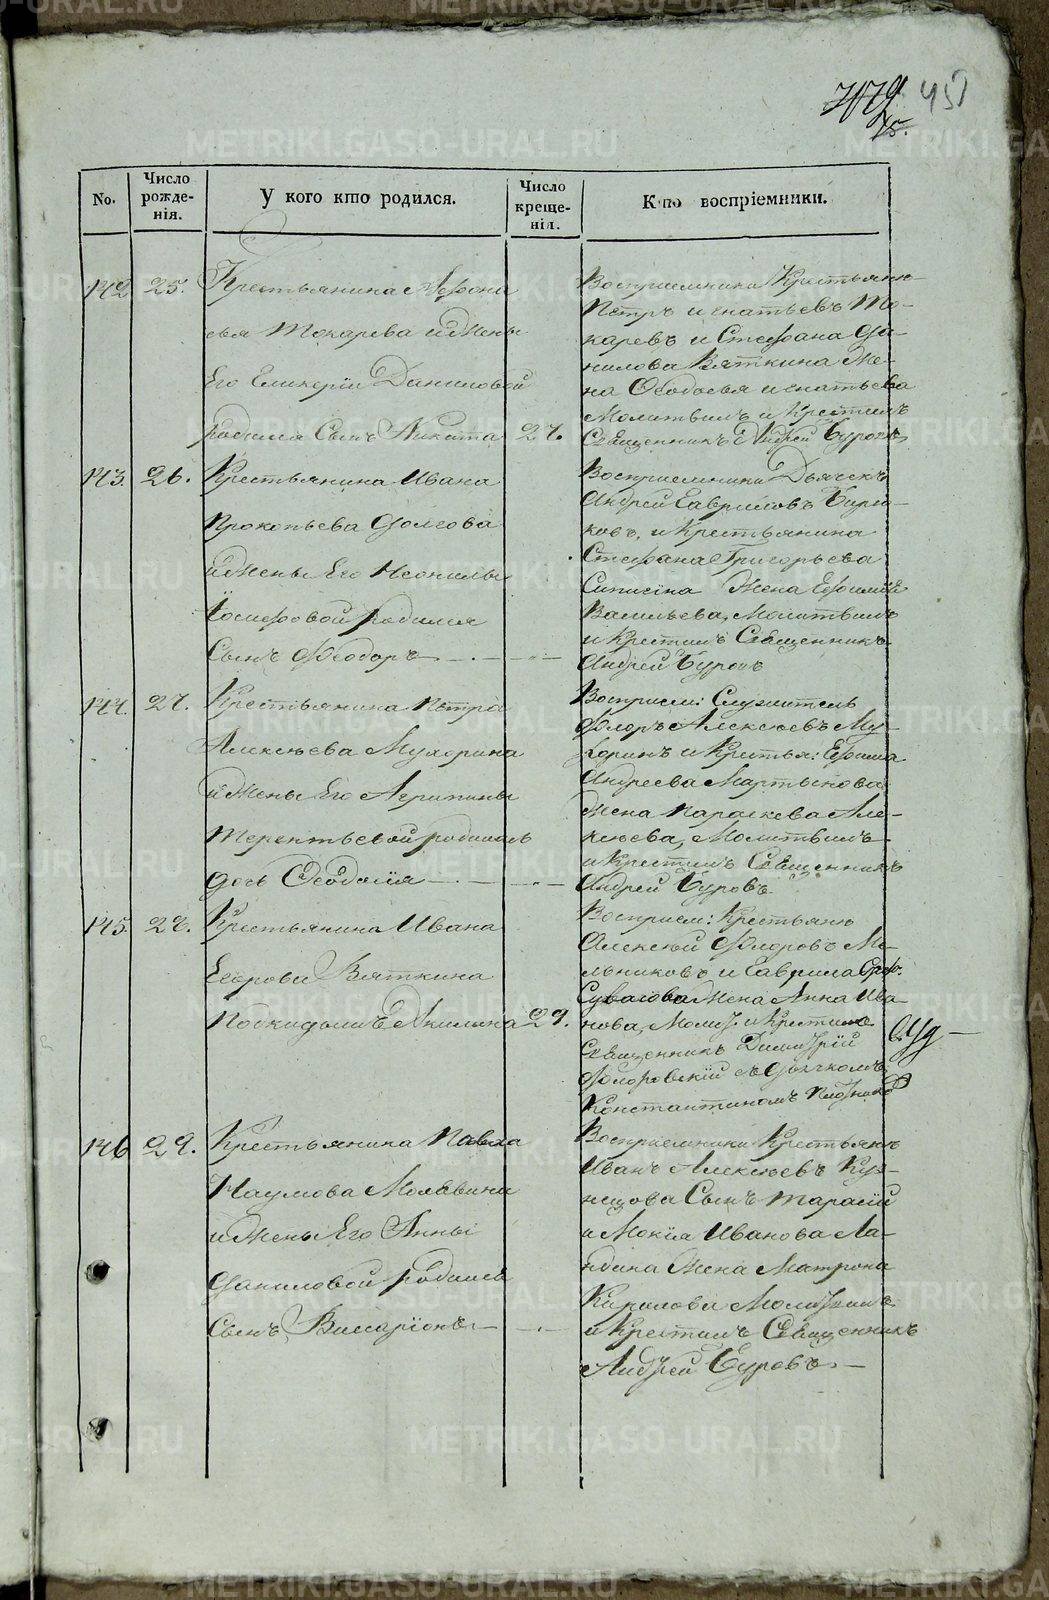 45
No.
Число рожде-нія.
У кого кто родился.
Число креще-нія.
Кто воспріемники.
142 25. Крестьянина Афона
сья Токарева и Жены
Его Гликеріи Даниловой
родился Сынъ Никита 27.
Восприемники Крестьяне
Петръ Игнатьевъ То-
каревъ и Стефана Да-
нилова Вяткина Же-
на Феодосья Игнатьева
Молитвилъ и Крестилъ
Священникъ Андрей Буровъ
143. 26. Крестьянина Ивана
Прокопьева Долгова
и Жены Его Неонилы
Іосифовой родился
Сынъ Феодоръ
Восприемники Дьячекъ
Андрей Гавриловъ
ковъ, и Крестьянина
Стефана Григорьева
Жена Ефимія
Васильева, Молитвилъ
и Крестилъ Священникъ
Андрей Буровъ
144. 27. Крестьянина Петра
Алексѣева Мухорина
и Жены Его Агрипины
Терентьевой родилась
дочь Феодосія
Восприем: Служитель
Федоръ Алексѣевъ Му-
хоринъ и Крестья: Ефима
Андреева Мартынова
Жена Параскева Але-
ксѣева, Молитвилъ
и Крестилъ Священникъ
Андрей Буровъ
145. 28. Крестьянина Ивана
Егорова Вяткина
Подкидышъ Акилина 29.
Восприем: Крестьяне
Алексѣй Федоровъ Ме-
льниковъ и Гаврила
Жена Анна Ива-
нова, Молит. и Крестилъ
Священникъ Димитрій
Флоровскій съ Дьячкомъ
Константиномъ
146 29. Крестьянина Павла
Наумова Молвина
и Жены Его Анны
Даниловой родился
Сынъ Виссаріонъ
Восприемники Крестьяне
Иванъ Алексѣевъ Куз-
нецова Сынъ Тарасій
и Мокія Иванова Ла-
ндина Жена Матрона
Кирилова Молитвилъ
и Крестилъ Священникъ
Андрей Буровъ
METRIKI.GASO-URAL.RU